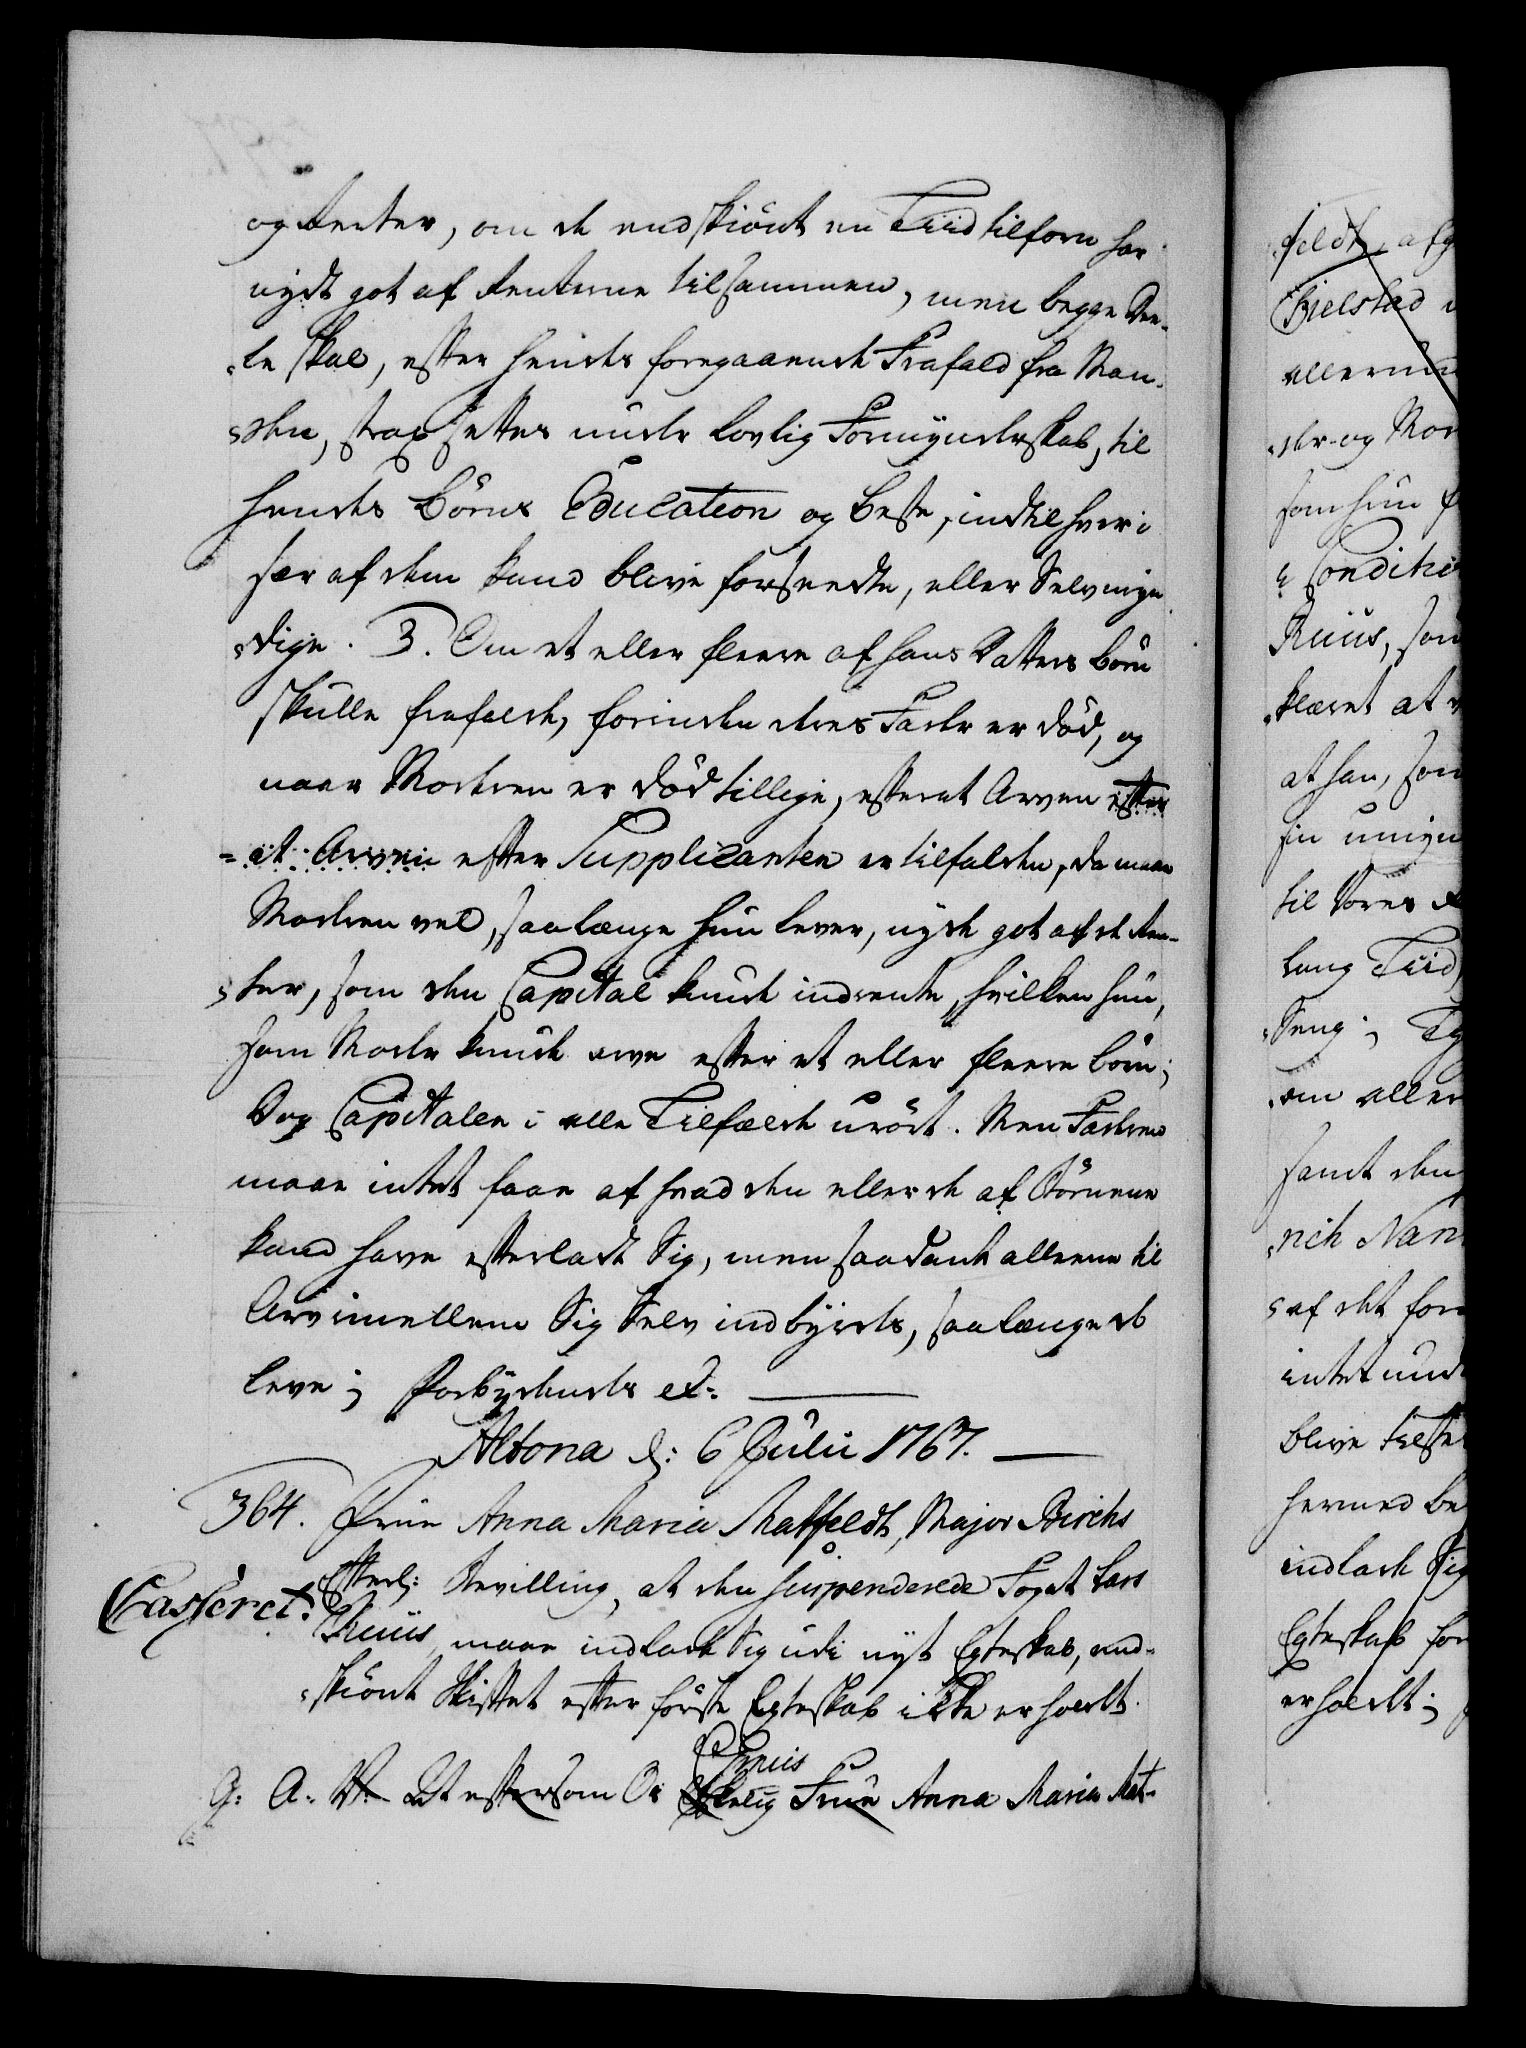 og Renter, om de endskiönt en Tiid tilforn har
nydt got af Renterne tilsammen, men begge Dee-
-le skal, efter hendes foregaaende Frafald fra Man-
-den, strax settes under lovlig Formynderskab, til
hendes Börns Education og beste, indtil hver i
sær af dem kand blive forseedte, eller Selvmyn-
-dige. 3. Om et eller fleere af hans Datters börn
skulle frafalde, forinden deres Fader er död, og
naar Moderen er död tillige, efterat Arven efter
-at Arven efter Supplicanten er tilfalden, da maae
Moderen vel, saalænge hun lever, nyde got af de Ren-
-ter, som den Capital kunde indrente, hvilken hun,
som Moder kunde arve efter et eller fleere börn;
Dog Capitalen i alle Tilfælde urört. Men Faderen
maae intet faae af hvad den eller de af Börnene
kand have efterladt Sig, men saadant alleene til
Arv imellem Sig Selv indbyrdes, saalænge de
leve; Forbydendes etc.
Altona d: 6 Julii 1767.
364. Frue Anna Maria Matfeldt, Major Birchs
Efterl: Bevilling, at den suspenderede Foget Lars
Casseret. Kruus, maae indlade Sig udi nyt Egteskab, end-
-skiönt Skiftet efter förste Egteskab ikke er holdt.
Os
G: A. V. Vt eftersom Os Frue Anna Maria Mat-
feldt, afg
Fielstad
allerund
-der- og Mor
som hun
Conditi
Kruus, som
-klæret at
at han, som
sin umyn
til Vores
lang Tiid
-Seng; Eg
-om aller
samt den
-rich Nan
-af det for
intet und
blive tilste
hermed be
indlade Sig
Egteskab for
er holdt;